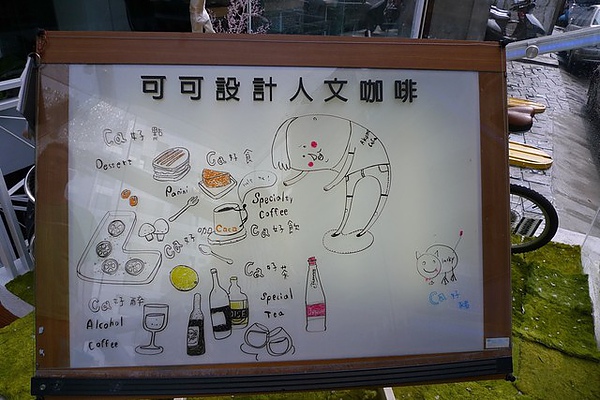 可可設計人文咖啡
Ca好點
Dessert
Ca好食
Panini
Specialty
Coffee
Caca
Ca好飲
Ca好
Ca好茶
Special
Tea
Ca好醉
Alcohol
Coffee
Ca好